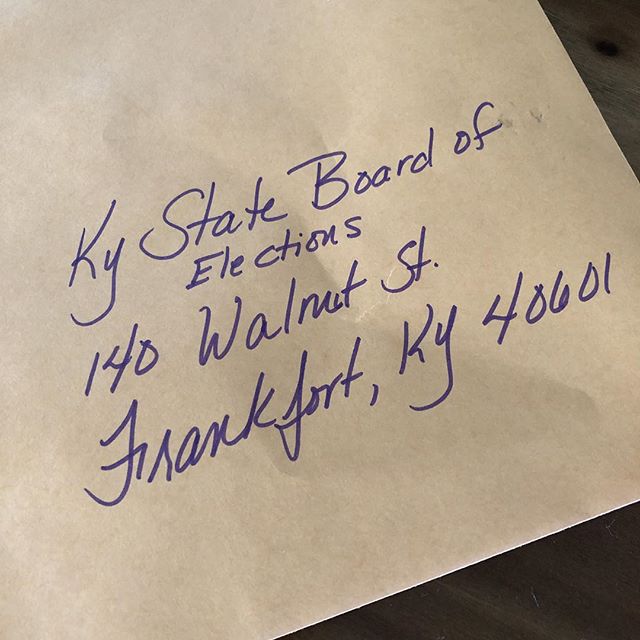 Ky State Board of
Elections
140 Walnut St.
Frankfort, Ky 40601